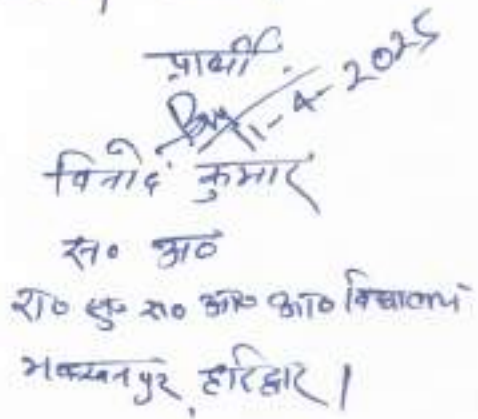 प्रार्थी
11-4-2025
विनोद कुमार
स० अ०
रा० सु० रा० आ० आ० विद्यालय
मक्खनपुर, हरिद्वार।